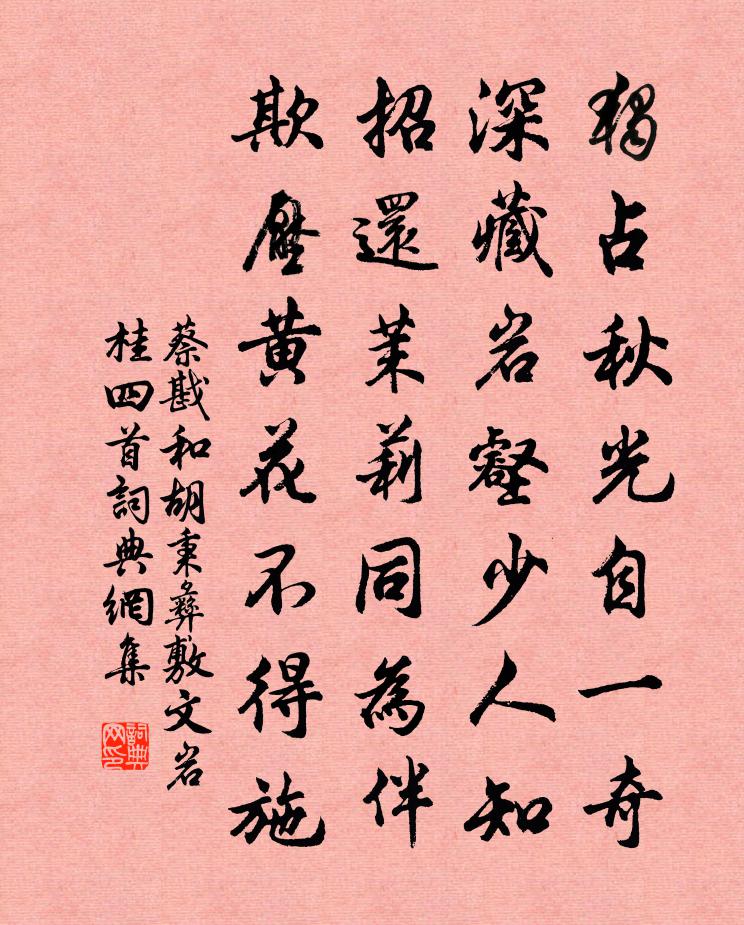 獨占秋光自一奇
深藏岩壑少人知
招還茉莉同為伴
欺壓黄花不得施
蔡戡和胡秉彝敷文岩
桂四首詞典網集
詞典
网印